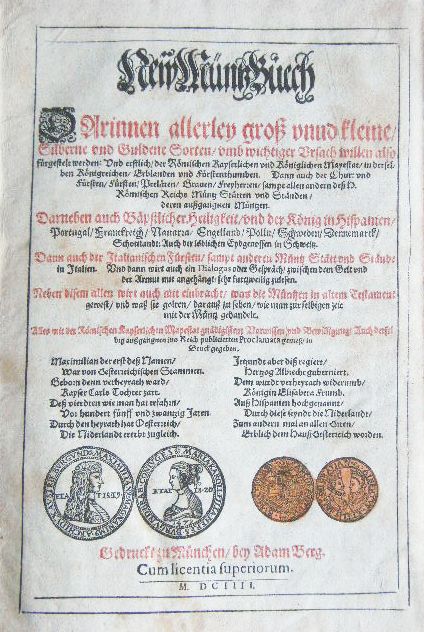 New Müntz Buech
DArinnen allerley groß vnnd kleine/
Silberne vnd Guldene Sorten/ vmb wichtiger Vrsach willen also
fürgestelt werden: Vnd erstlich/ der Römischen Kayserlichen vnd Königlichen Mayestat/ in dersel-
ben Königreichen/ Erblanden vnd Fürstenthumben. Dann auch der Chur vnd
Fürsten/ Fürsten/ Prelaten/ Grauen/ Freyherren/ sampt allen andern deß H.
Römischen Reichs Müntz Stätten vnd Ständen/
deren außgangnen Müntzen.
Darneben auch Bäpstlicher Heiligkeit/ vnd der König in Hispanien/
Portugal/ Franckreich/ Nauarra/ Engelland/ Polln/ Schweden/ Dennemarck/
Schottlandt: Auch der löblichen Eydgenossen in Schweitz.
Dann auch der Italianischen Fürsten/ sampt anderen Müntz Stätt vnd Stände
in Italien. Vnd dann wirt auch ein Dialogus oder Gespräch/ zwischen dem Gelt vnd
der Armut mit angehängt/ sehr kurtzweilig zulesen.
Neben disem allen wirt auch mit einbracht/ was die Müntzen in altem Testament
gerest/ vnd was sie golten/ darauß zu sehen/ wie man zur selbigen zeit
mit der Müntz gehandelt.
Alles mit der Römischen Kayserlichen Mayestat gnädigisten Vorwissen vnd Bewilligung: Auch dersel-
big außgangnen ins Reich publicierten Proclamata gemeß/ in
Druck gegeben.
Maximilian der erst deß Namen/
War von Oesterreichischen Stammen.
Geborn denn verheyrath ward/
Kayser Carls Tochter zart.
Deß vierdten wie man hat erfahrn/
Vor hundert fünff vnd zwantzig Jaren.
Durch den heyrath hat Oesterreich/
Die Niderlandt ererbt zugleich.
Jetzundt aber diß regiert/
Hertzog Albrecht guberniert.
Dem wurdt verheyrath widerumb/
Königin Elisabeta Frumb.
Auß Hispanien hochgenannt/
Durch diese seyndt die Niderlandt/
Zum andern mal an allen Orten/
Erblich dem Hauß Oesterreich worden.
ETA
1479
ETAT
20
Gedruckt zu München/ bey Adam Berg.
Cum licentia superiorum.
M. DCIIII.